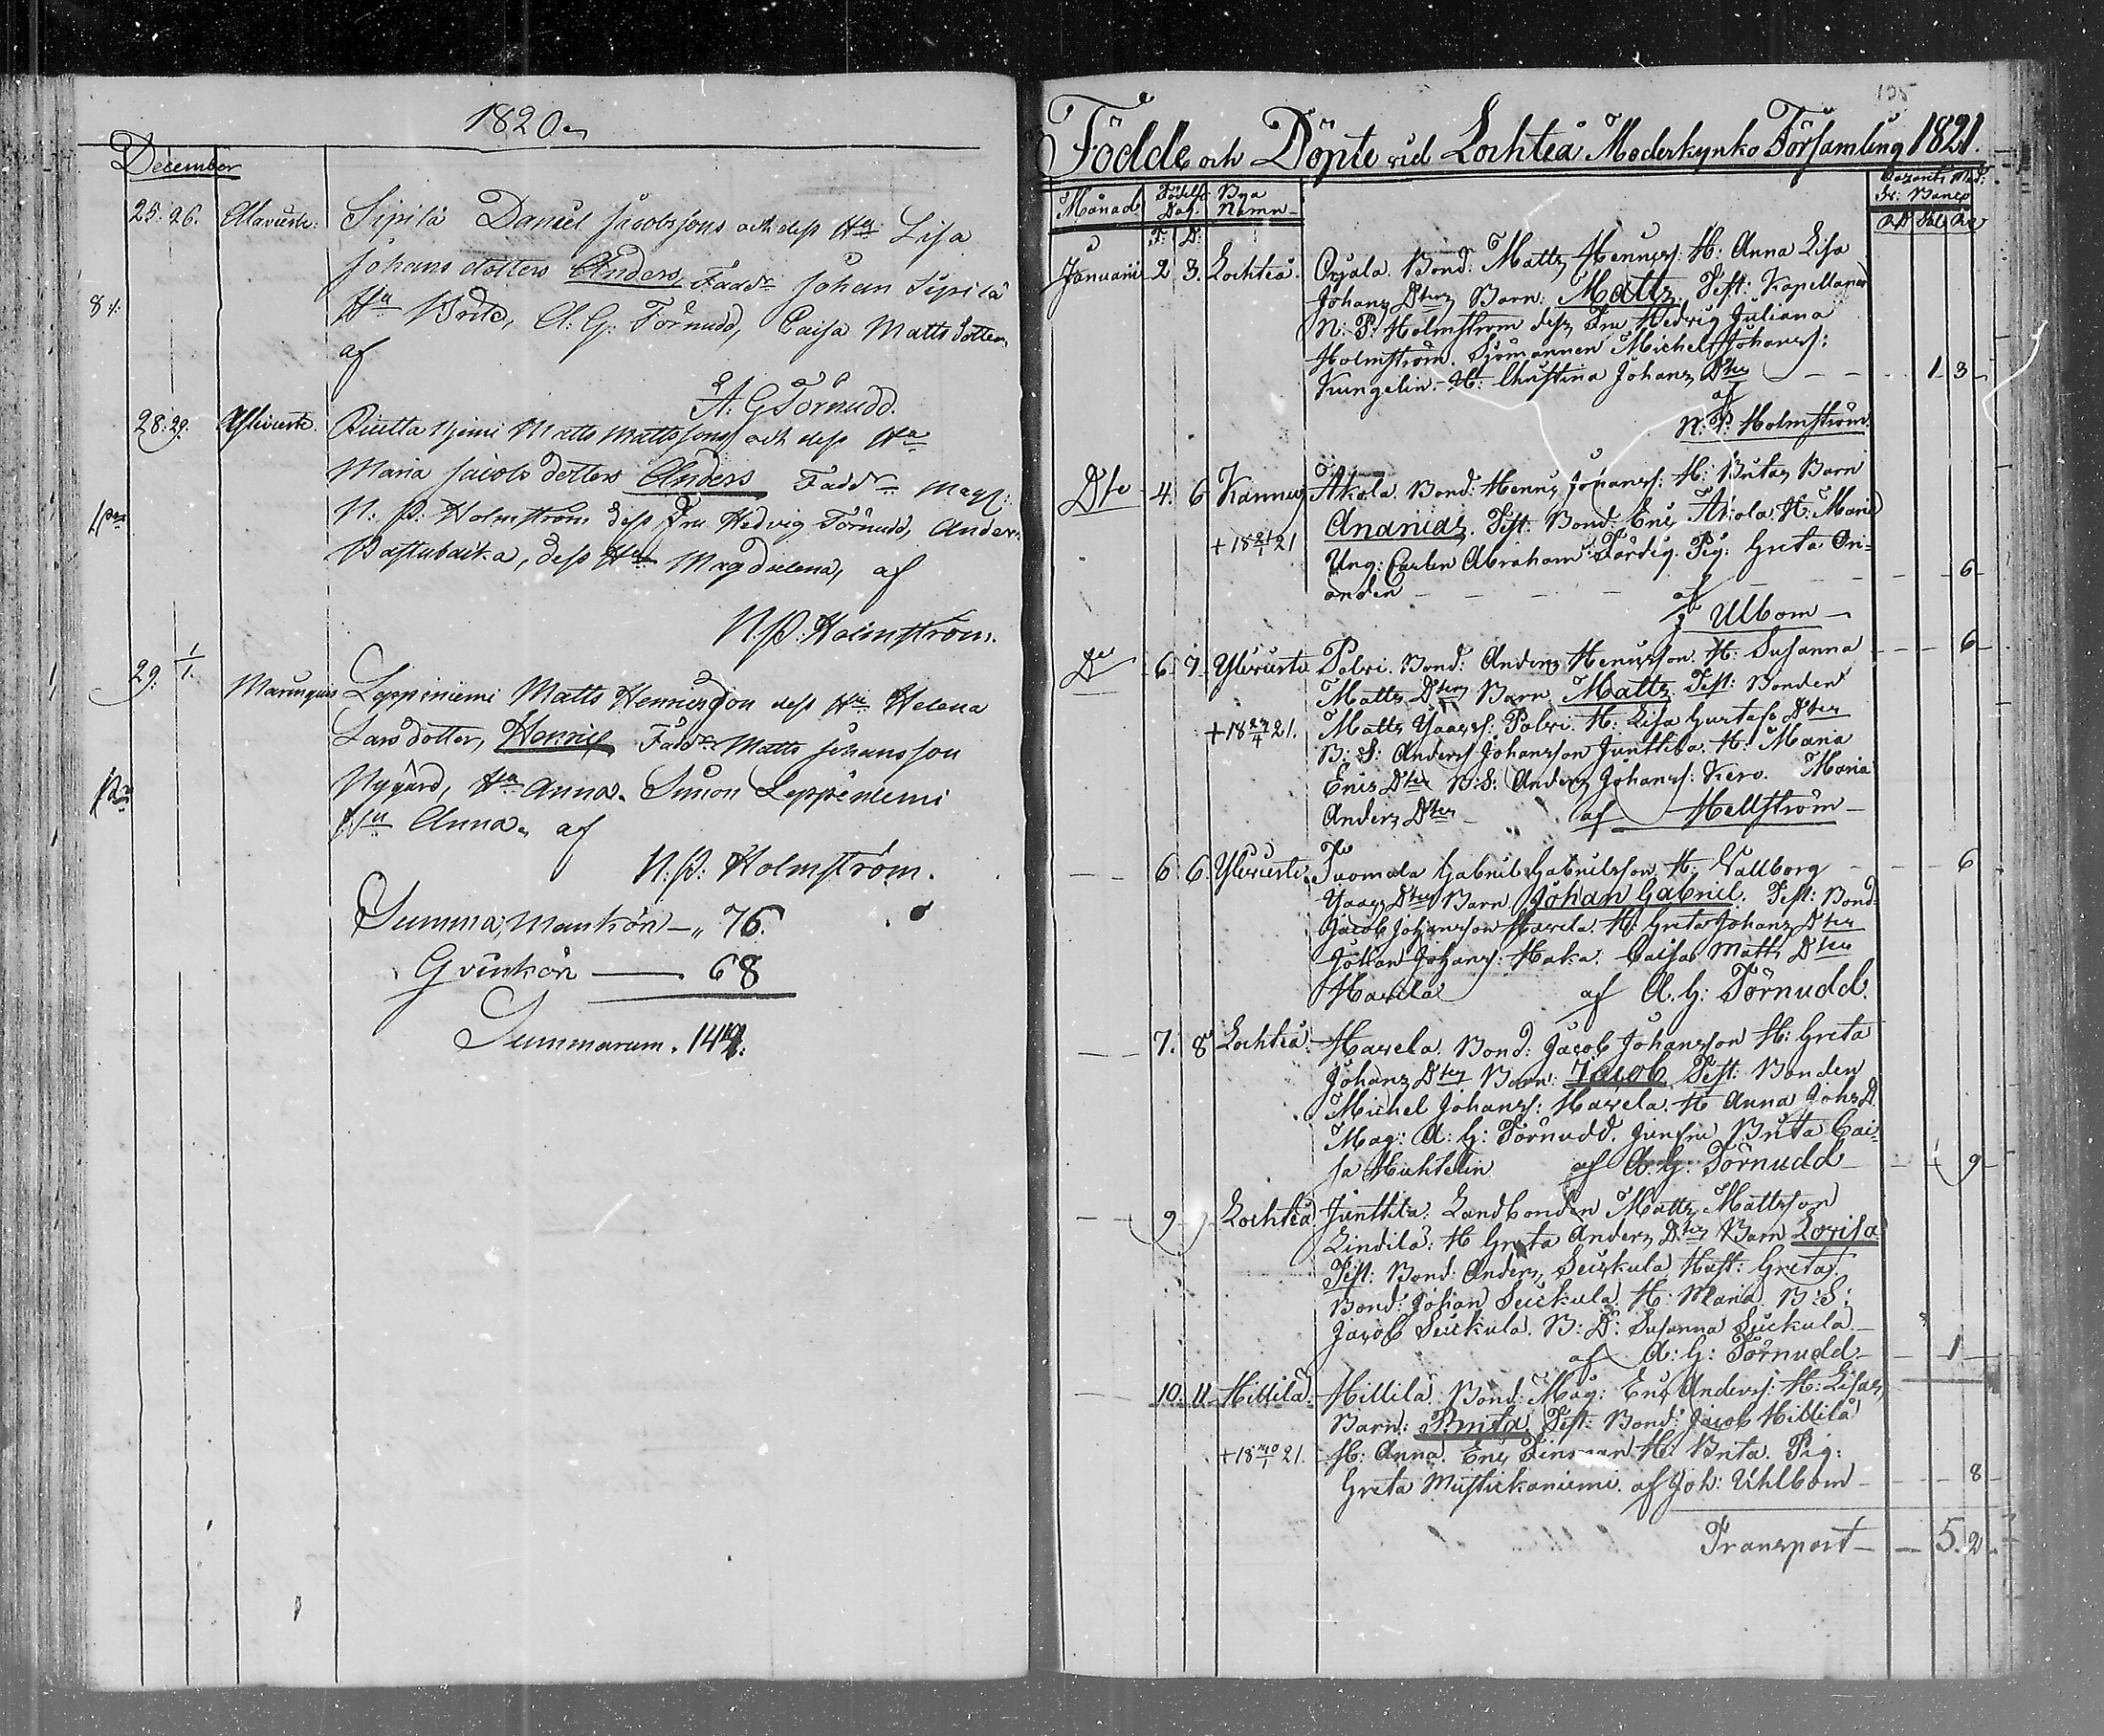 1820
December
25. 26. Alavirte: Sipilä Daniel Jacobssons och dess Hu Lisa
Johans dotters Anders, Faddr Johan Sipilä
8 s: Hu Brita, A: G: Törnudd, Caisa Matts dotter
af
A. G Törnudd.
28. 29. Matts Mattssons och dess Hu
Maria Jacobs dotters Anders Faddr Mag:
N. P. Holmström dess Fru Hedvig Törnudd, Anders
dess Hu Magdalena, af
N. P. Holmström.
29. 1/1. Marinquis Leppiniemi Matts Hennicsson dess Hu Helena
Lars dotter, Henric Faddr Matts Johansson
Nygård, Hu Anna. Simon Leppiniemi
Hu Anna. af
N: P: Holmström.
Summa, Mankön — 76.
Qvinkön — 68
Summarum. 144.
105
Födde och Döpte vid Lochteå Moderkyrko Församling 1821.
Månad Födelse Dag. Bya Namn
F: D: RD Sk
Januarii 2 3. Lochteå. Orjala. Bond: Matts Henricss: H: Anna Lisa
Johans Dters Barn: Matts, Test: Kapellanen
N: P: Holmström dess Fru Hedvig Juliana
Holmström. Sjömannen Michel Johanss:
Kungelin. H: Christina Johans Dter — 1 3
af
N: P: Holmström
Dto 4. 6 Kannus Akola. Bond: Henric Johanss: H: Britas Barn
Ananias. Test: Bond: Eric Akola. H: Maria
+ 18 21/1 21 Ung: Carlen Abraham Färdig. Pig: Greta Ori-
onden — 6
af
J Ulbom
Do 6 7. Yliviirte Polvi. Bond: Anders Henricsson. H: Susanna — 6
Matts Dters Barn Matts. Test: Bonden
+ 18 21. Matts Ysaacs: Polvi. H: Lisa Gustafs Dter
B: S: Anders Johansson Junttila. H: Maria
Erics Dter B: S: Anders Johanss: Kero. Maria
Anders Dter — af Hellström
— 6 6. Yliviirte. Tuomala Gabriel Gabrielsson H: Vallborg — 6
Ysaacs Dters Barn Johan Gabriel. Test: Bond:
Jacob Johansson Harela. H: Greta Johans Dter
Johan Johanss: Haka. Caisa Matts Dter
Harela af A. G: Törnudd.
— 7. 8 Lochteå. Harela. Bond: Jacob Johansson H: Greta
Johans Dters Barn: Jacob Test: Bonden
Michel Johanss: Harela. H Anna Johs D.
Mag: A: G: Törnudd. Junfru Brita Cai-
sa Huhtelin af A. G: Törnudd — 9
— 9 9. Lochteå Junttila. Landbonden Matts Mattsson
Lindila: H Greta Anders Dters Barn Lovisa
Test: Bond: Anders Seickula Hust: Greta.
Bond: Johan Seickula H: Maria B: S:
Jacob Seickula. B: D: Susanna Seickula
af A: G: Törnudd — 1
— 10. 11. Hillilä. Hillilä. Bond: Mag: Eric Anderss: H: Lisas
Barn: Brita Test: Bond: Jacob Hillilä
+ 18 21. H: Anna. Eric H: Brita. Pig:
Greta Mustickaniemi. af Joh: Uhlbom — 8
Transport — 5. 2